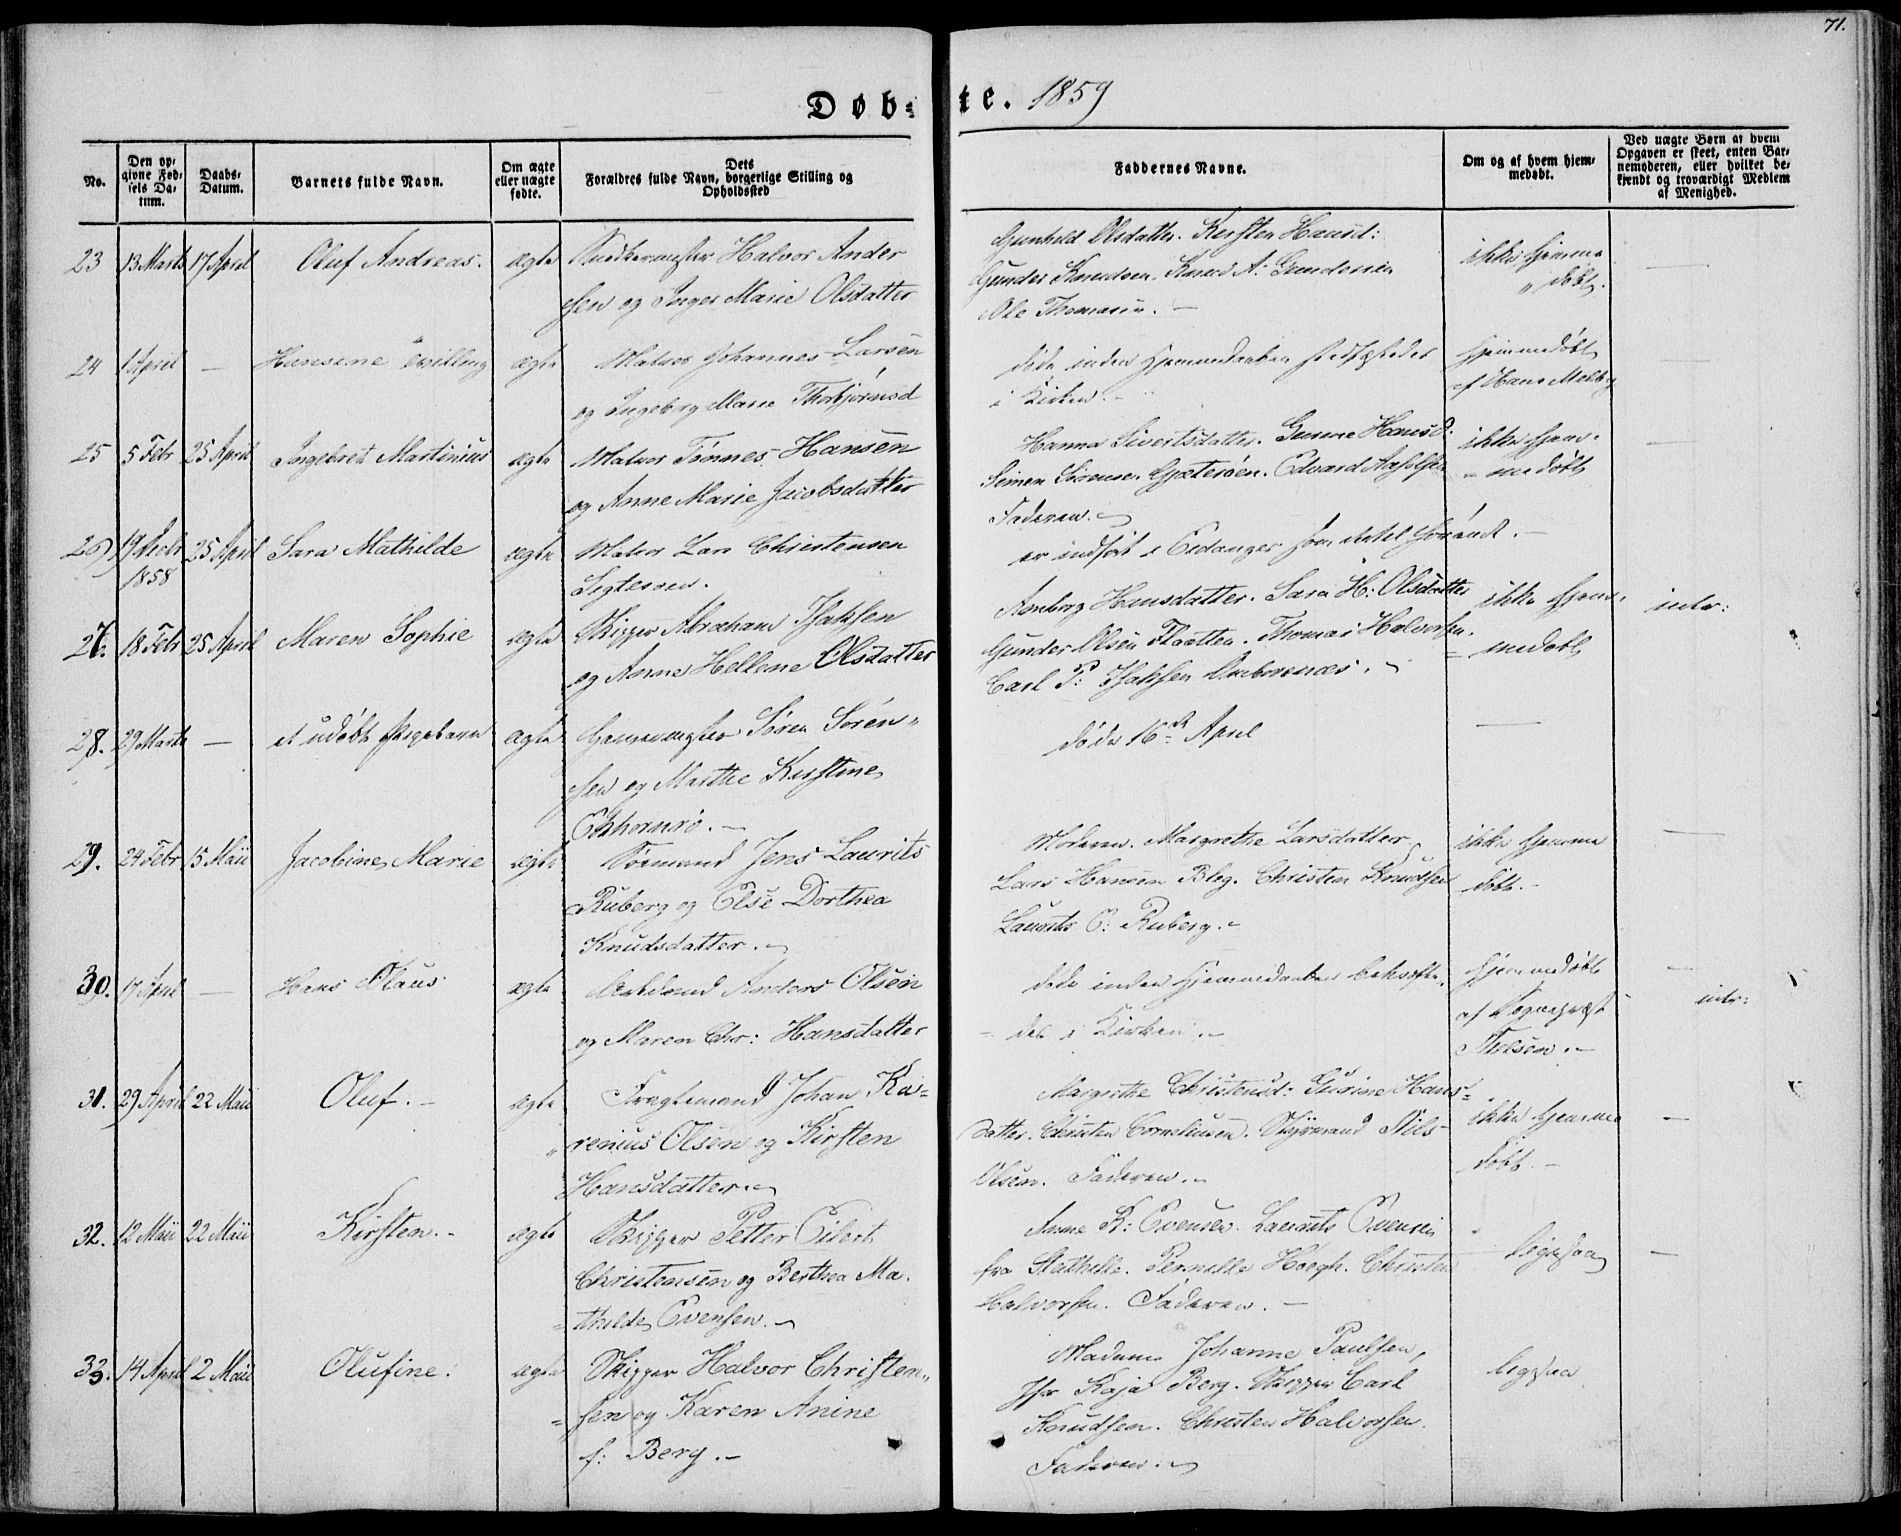 71.
Døb-te. 1859
No.
Den opgivne Fødsels Datum.
Daabs-Datum.
Barnets fulde Navn.
Om ægte eller uægte fødte.
Dets Forældres fulde Navn, borgerlige Stilling og Opholdssted
Faddernes Navne.
Om og af hvem hjemmedøbt.
Ved uægte Børn af hvem Opgaven er skeet, enten Barnemoderen, eller hvilket bekjendt og troværdigt Medlem af Menighed.
23 13 Marts 17 April Oluf Andreas. ægte Halvor Ander
sen og Inger Marie Olsdatter
Gunhild Olsdatter. Kirsten Hansd:
Gunder Knudsen. Knud A. Gundersen
Ole Thomasen. —
ikke hjemme
„ døbt.
24 1 April — Hansine tvilling ægte Matros Johannes Larsen
og Ingeborg Marie Thorbjørnsd
døde inden Hjemmedaaben stadfæstedes
i Kirken. —
hjemmedøbt
af Hans Melby
25 5 Febr 25 April Ingebret Martinius ægte Matros Tønnes Hansen
og Anne Marie Jacobsdatter
Hanna Sivertsdatter. Gurine Hansd.
Simen Gjeterøen. Edvard
Faderen.
ikke hjem-
- medøbt
26) 19 1858 25 April Sara Mathilde ægte Matros Lars Christensen
er indført i Eidanger
27. 18 Febr 25 April Maren Sophie ægte Skipper Abraham Isaksen
og Anne Hellene Olsdatter
Hansdatter. Sara H: Olsdatter
Gunder Olsen Flaatten. Thomas Halvorsen.
Carl P: Isaksen
ikke hjem-
= medøbt
intr:
28. 29 Marts — et udøbt Pigebarn ægte Søren Søren„
sen og Marthe Kirstine
Ekhornrø. —
døde 16de April
29. 24 Febr 15 Maii Jacobine Marie ægte Sømand Jens Laurits
Ruberg og Else Dorthea
Knudsdatter.
Moderen. Margrethe Larsdatter
Lars Hansen Bleg. Christen Knudsen
Laurits C: Ruberg. —
ikke hjemme
døbt. —
30. 17 April — Hans Olaus ægte Anders Olsen
og Maren Chr: Hansdatter
døde inden Hjemmedaaben bekræfte„
= des i Kirken. —
hjemmedøbt
af Sogneprest
Nielsen. —
intr:
31. 29 April 22 Maii Oluf. — ægte Fragtemand Johan Ka-
„ renius Olsen og Kirsten
Hansdatter.
Margrethe Christensd: Gurine Hans-
datter. Christen Corneliusen. Styrmand Nils
Olsen. Faderen. —
ikke hjemme
døbt. —
32. 12 Maii 22 Maii Kirsten. — ægte Skipper Petter Eilert
Christensen og Berthea Ma-
= thilde Evensen. —
Anne K: Evensen. Laurits Evensen
fra Stathelle. Pernille Høegh. Christen
Halvorsen. Faderen. —
ligesaa
33. 14 April 2 Maii Olufine. ægte Skipper Halvor Christen„
= sen og Karen Anine
f: Berg. —
Madame Johanne Paulsen,
Jfr Kaja Berg. Skipper Carl
Knudsen. Christen Halvorsen.
Faderen.
ligesaa